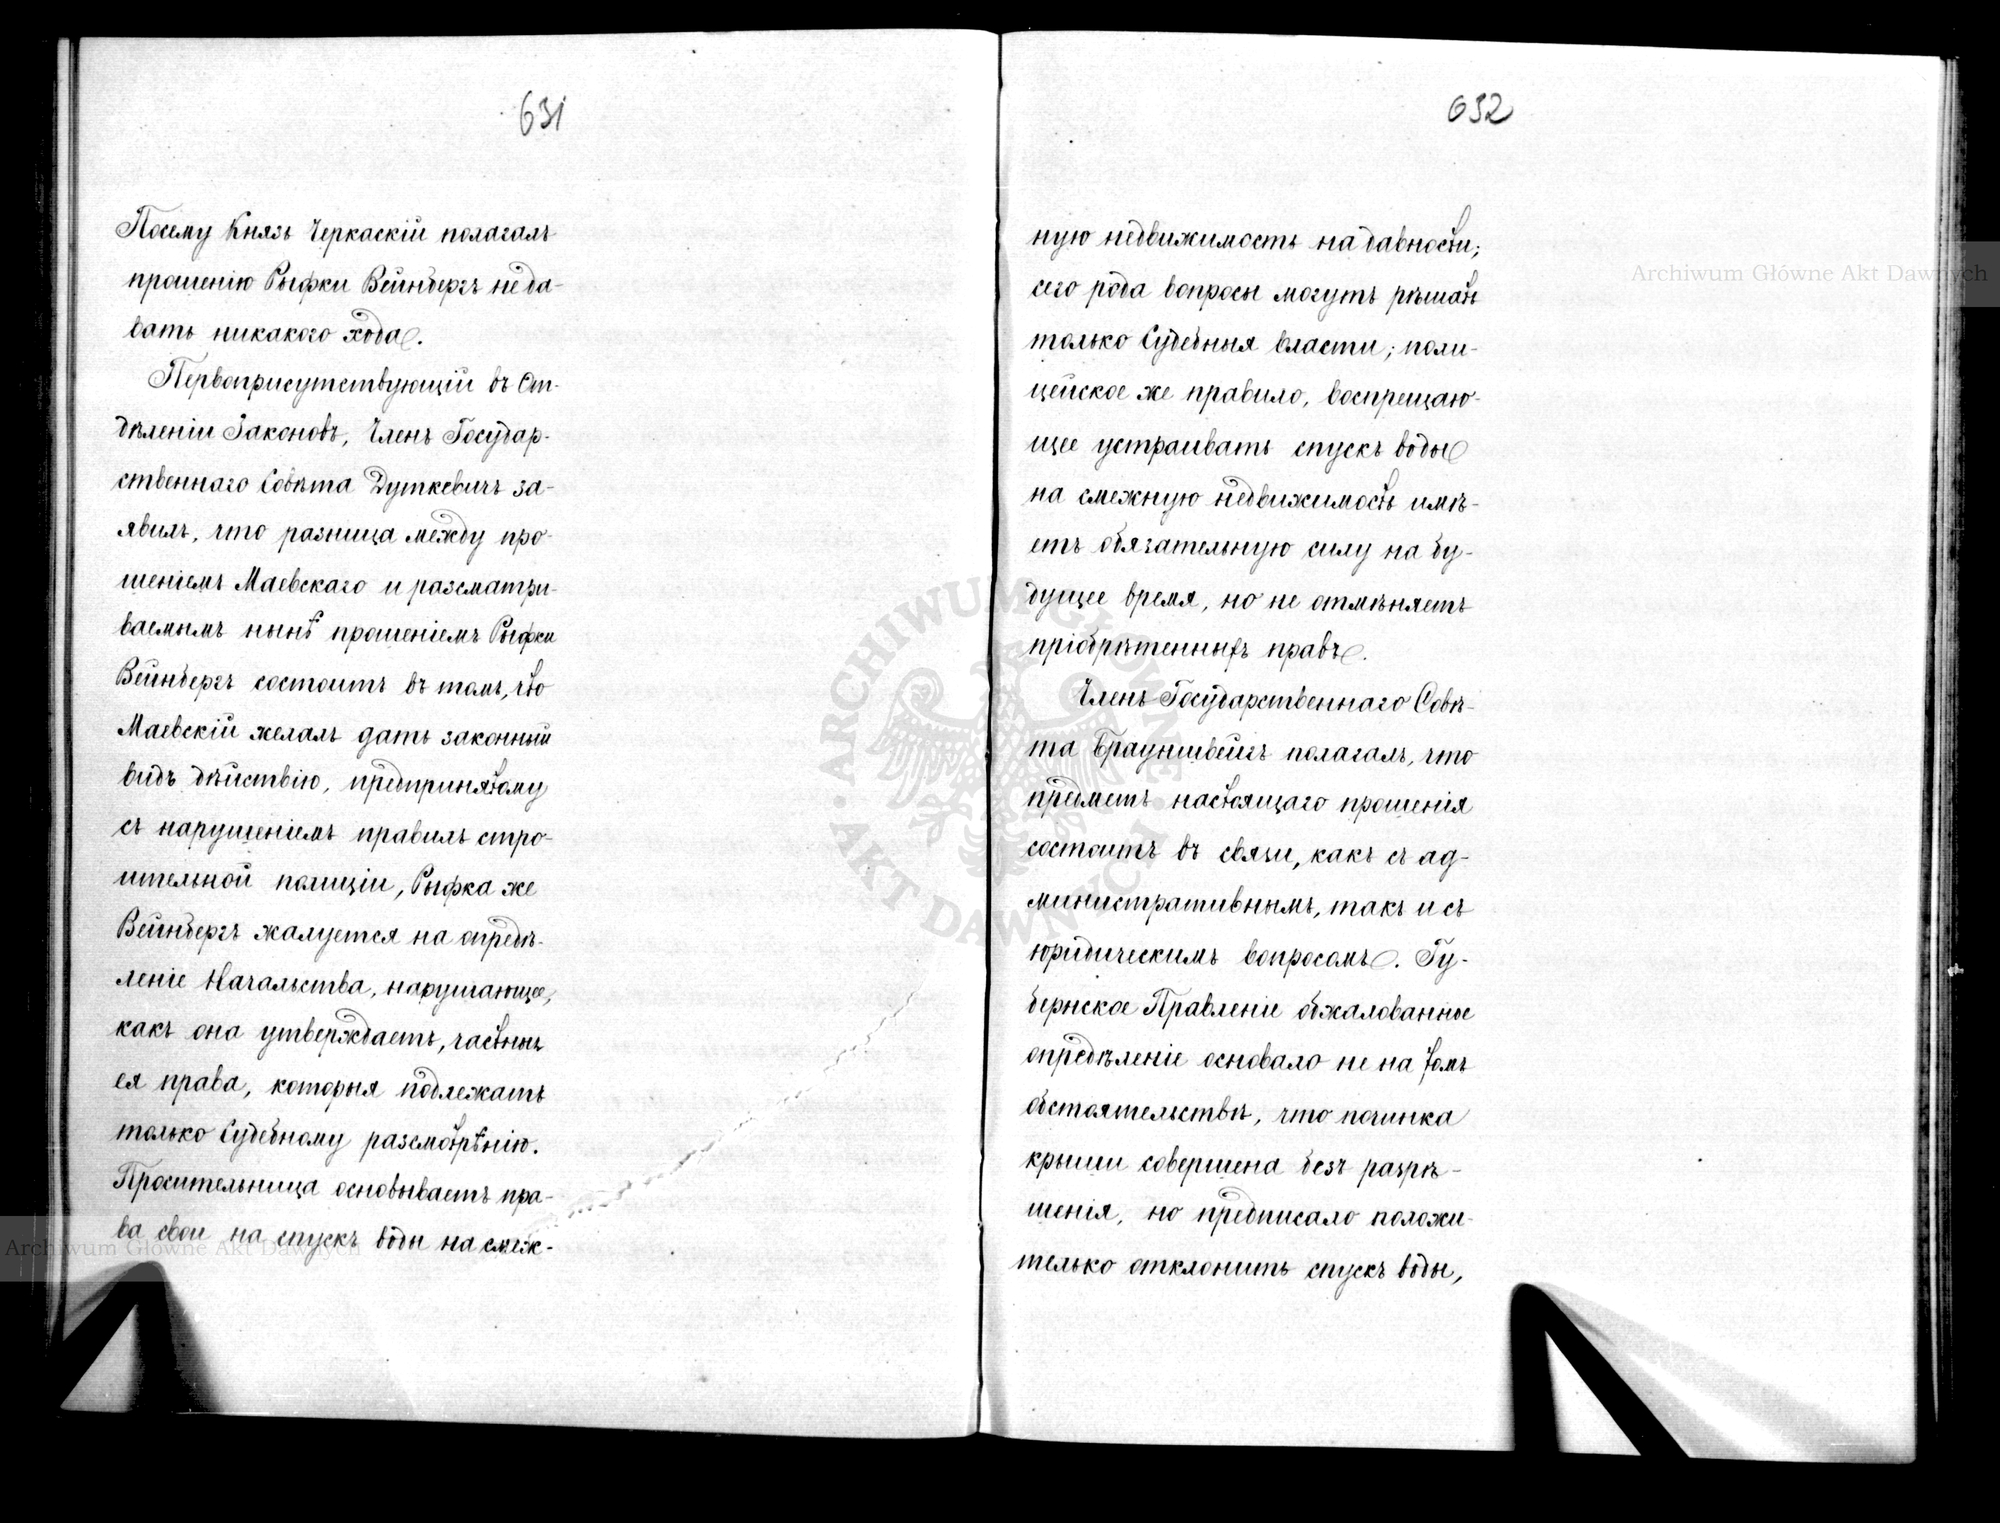 631
Посему Князь Черкаскій полагалъ
прошенію Рыфки Вейнбергъ не да-
вать никакого хода.
Первоприсутствующій въ От-
дѣленіи Законовъ, Членъ Государ-
ственнаго Совѣта Дуткевичъ за-
явилъ, что разница между про-
шеніемъ Маевскаго и разсматри-
ваемымъ нынѣ прошеніемъ Рыфки
Вейнбергъ состоитъ въ томъ, что
Маевскій желалъ дать законный
видъ дѣйствію, предпринятому
съ нарушеніемъ правилъ стро-
ительной полиціи, Рыфка же
Вейнбергъ жалуется на опредѣ-
леніе Начальства, нарушающее,
какъ она утверждаетъ, частныя
ея права, которыя подлежатъ
только Судебному разсмотрѣнію.
Просительница основываетъ пра-
ва свои на спускъ воды на смеж-
632
ную недвижимость на давности;
сего рода вопросы могутъ рѣшать
только Судебныя власти; поли-
цейское же правило, воспрещаю-
щее устраивать спускъ воды
на смежную недвижимость имѣ-
етъ обязательную силу на бу-
дущее время, но не отмѣняетъ
пріобрѣтенныхъ правъ.
Членъ Государственнаго Совѣ-
та Брауншвейгъ полагалъ, что
предметъ настоящаго прошенія
состоитъ въ связи, какъ съ ад-
министративнымъ, такъ и съ
юридическимъ вопросомъ. Гу-
бернское Правленіе обжалованное
опредѣленіе основало не на томъ
обстоятельствѣ, что починка
крыши совершена безъ разрѣ-
шенія, но предписало положи-
тельно отклонить спускъ воды,
Archiwum Główne Akt Dawnych
Archiwum Główne Akt Dawnych
ARCHIWUM GŁÓWNE AKT DAWNYCH